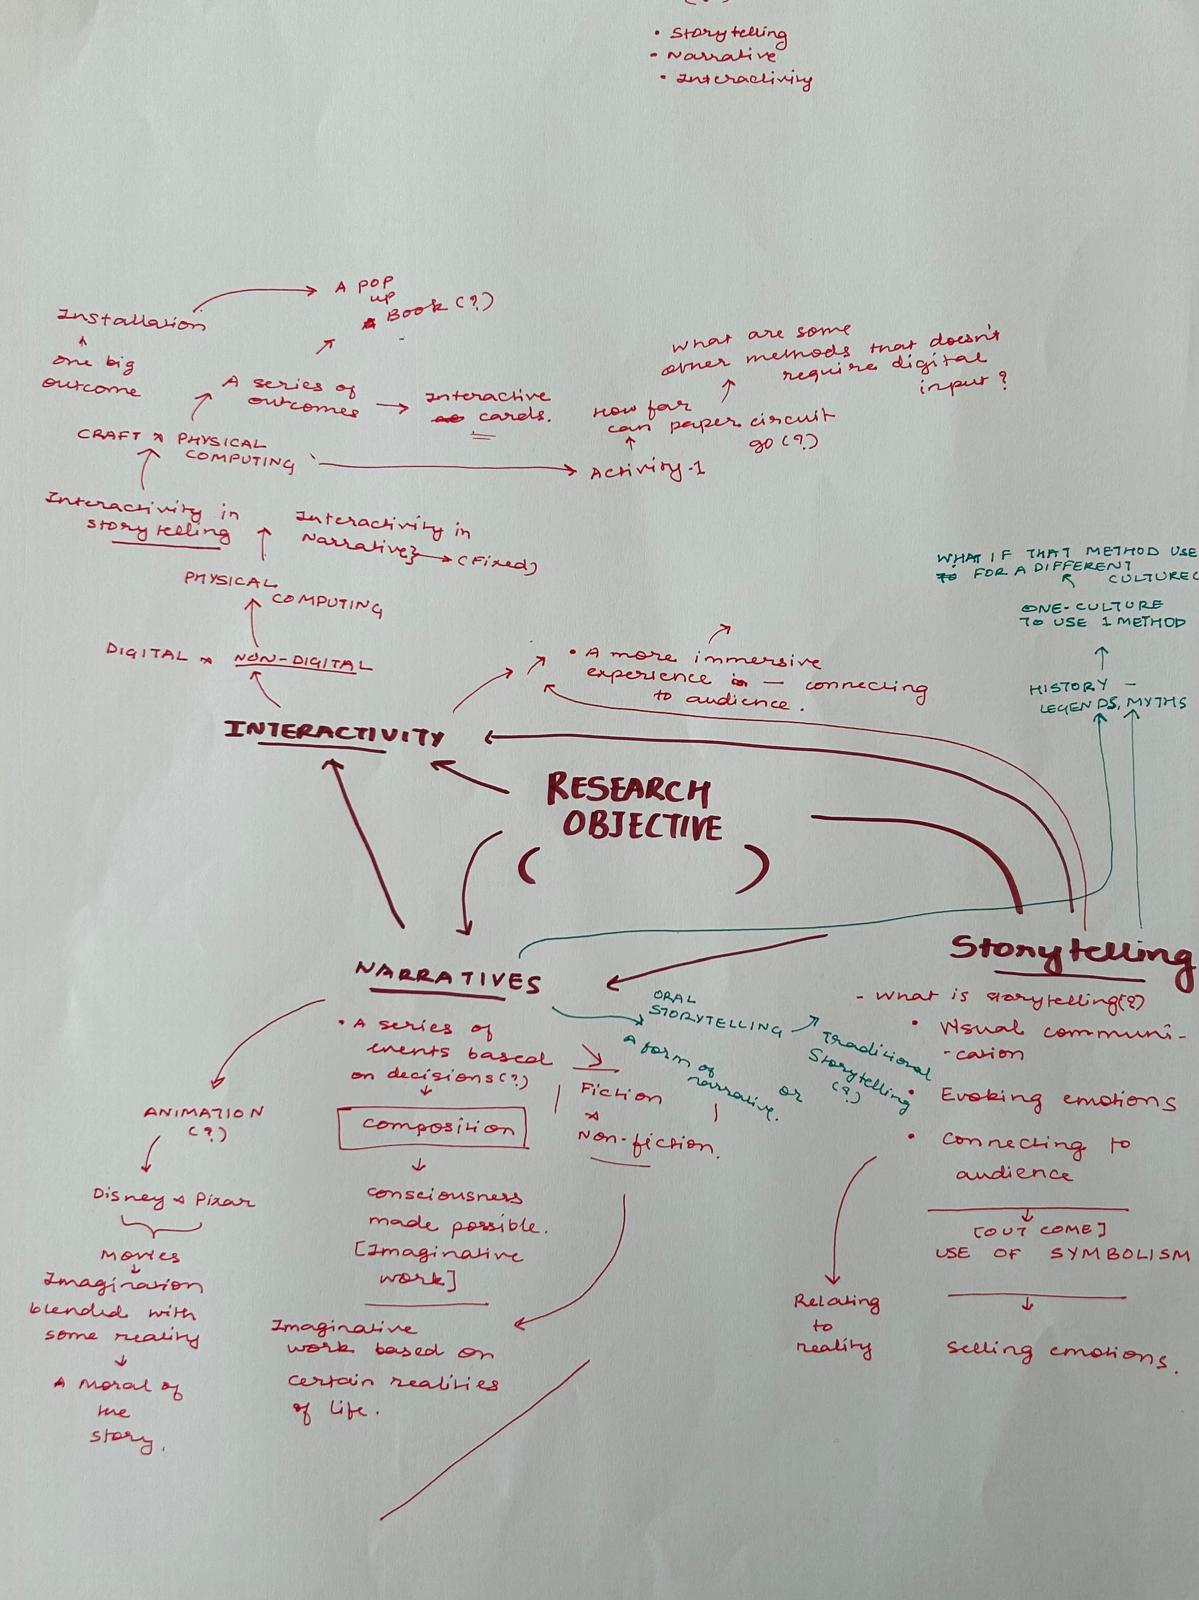 • Storytelling
- Narrative
• Interactivity
A POP
up
Book (?)
Installation
one big
outcome
A series of
outcomes
Interactive
cards.
What are some
other methods that doesn't
require digital
input?
How far
can paper circuit
go (?)
CRAFT x PHYSICAL
COMPUTING
Activity-1
Interactivity in
storytelling
Interactivity in
Narrative} (Fixed)
PHYSICAL
COMPUTING
DIGITAL x NON-DIGITAL
WHAT IF THAT METHOD USE
FOR A DIFFERENT
CULTURE
ONE-CULTURE
TO USE 1 METHOD
HISTORY -
LEGENDS, MYTHS
• A more immersive
experience — connecting
to audience.
INTERACTIVITY
RESEARCH
OBJECTIVE
( )
NARRATIVES
Storytelling
• A series of
events based
on decisions(?)
composition
consciousness
made possible.
[Imaginative
work]
Imaginative
work based on
certain realities
of life.
Fiction
x
Non-fiction.
ORAL
STORYTELLING
A form of
narrative.
or
Traditional
Storytelling
(?)
ANIMATION
(?)
Disney x Pixar
Movies
Imagination
blended with
some reality
A Moral of
the
story.
- What is storytelling(?)
• Visual communi-
-cation
• Evoking emotions
• Connecting to
audience
[OUT COME]
USE OF SYMBOLISM
selling emotions.
Relating
to
reality